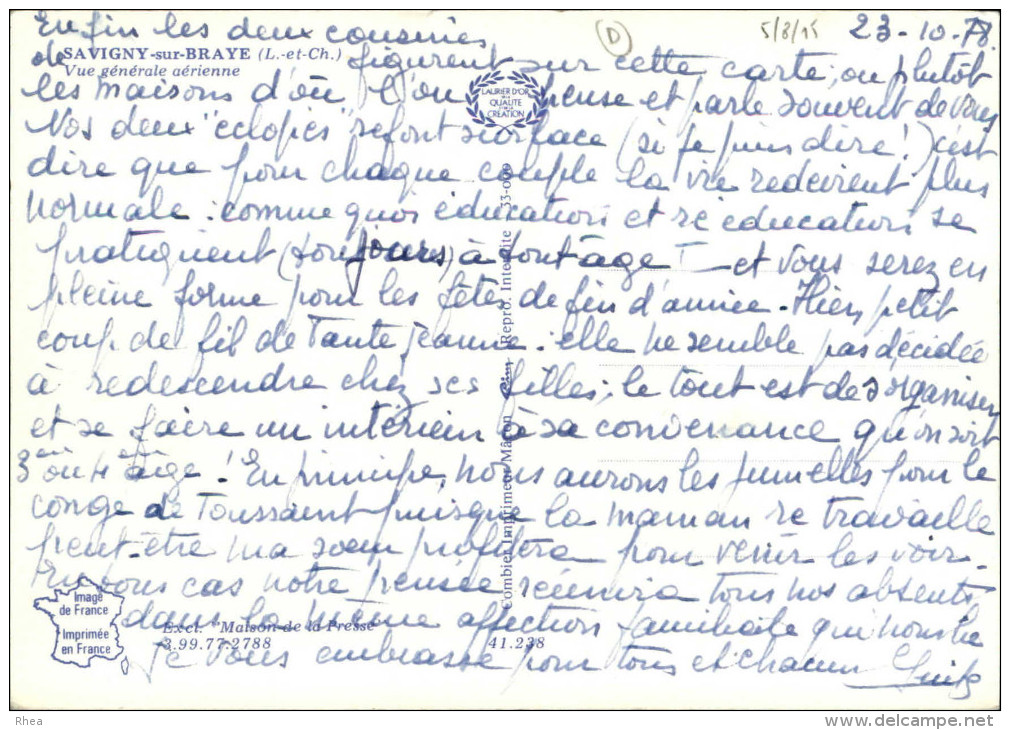 23-10-78
D
5/8/15
Enfin les deux cousines
de SAVIGNY-sur-BRAYE (L.-et-Ch.) figurent sur cette carte, ou plutôt
Vue générale aérienne
les maisons d'où l'on pense et parle souvent de vous
LAURIER D'OR
DE LA
QUALITE
CREATION
Nos deux "éclopés" refont surface (si je puis dire!) c'est
dire que pour chaque couple la vie redevient plus
normale : comme quoi éducation et rééducation se
pratiquent (toujours) à tout âge ! - et vous serez en
pleine forme pour les fêtes de fin d'année - Hier, petit
coup de fil de Tante Jeanne : elle ne semble pas décidée
à redescendre chez ses filles ; le tout est de s'organiser
et se faire un intérieur à sa convenance qu'on soit
3e ou 4e âge ! En principe, nous aurons les jumelles pour le
congé de Toussaint puisque la maman retravaille
peut-être ma soeur profitera pour venir les voir -
En tous cas notre pensée réunira tous nos absents
dans la même affection familiale
je vous embrasse pour tous et chacun
Combier Imprimeur Mâcon
Repro. Interdite
33-000
Image
de France
Imprimée
en France
Excl. "Maison de la Presse"
3.99.77.2788
41.238
Rhea
delcampe.net